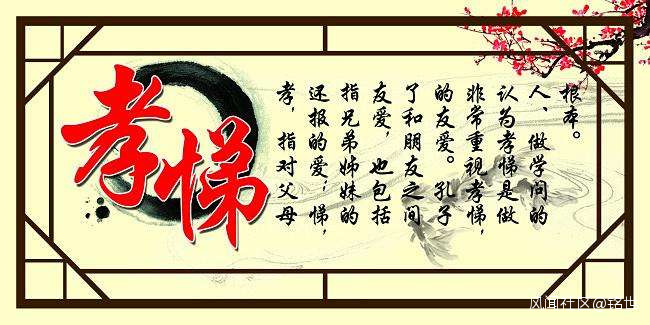 孝悌
孝，指对父母
还报的爱；悌，
指兄弟姊妹的
友爱，也包括
了和朋友之间
的友爱。孔子
非常重视孝悌，
认为孝悌是做
人、做学问的
根本。
风闻社区@铭世